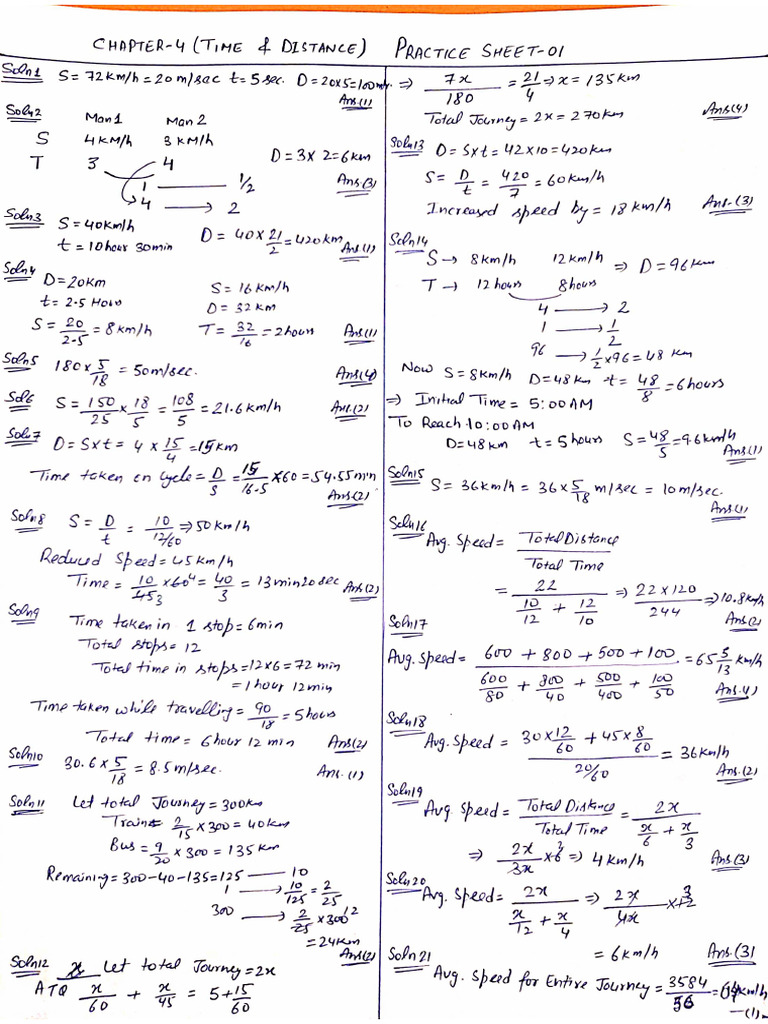 CHAPTER-4 (TIME & DISTANCE) PRACTICE SHEET-01
Soln1 S = 72km/h = 20 m/sec t = 5 sec. D = 20x5 = 100m.
Ans.(1)
Soln2 Man 1 Man 2
S 4 KM/h 3 KM/h
T 3 4 D = 3 x 2 = 6 km
1 → 1/2 Ans.(3)
4 → 2
Soln3 S = 40km/h
t = 10 hour 30 min D = 40 x 21/2 = 420 km Ans.(1)
Soln4 D = 20 Km S = 16 km/h
t = 2.5 Hours D = 32 km
S = 20/2.5 = 8 km/h T = 32/16 = 2 hours Ans.(1)
Soln5 180 x 5/18 = 50 m/sec. Ans.(4)
Sol6 S = 150/25 x 18/5 = 108/5 = 21.6 km/h Ans.(2)
Soln7 D = S x t = 4 x 15/4 = 15 km
Time taken on cycle = D/S = 15/16.5 x 60 = 54.55 min
Ans(2)
Soln8 S = D/t = 10/12/60 ⇒ 50 km/h
Reduced Speed = 45 km/h
Time = 10/45 3 x 60 4 = 40/3 = 13 min 20 sec Ans(2)
Soln9 Time taken in 1 stop = 6 min
Total stops = 12
Total time in stops = 12 x 6 = 72 min
= 1 hour 12 min
Time taken while travelling = 90/18 = 5 hours
Total time = 6 hour 12 min Ans(2)
Soln10 30.6 x 5/18 = 8.5 m/sec. Ans.(1)
Soln11 Let total Journey = 300 km
Train = 2/15 x 300 = 40 km
Bus = 9/20 x 300 = 135 km
Remaining = 300-40-135 = 125 — 10
1 → 10/125 = 2/25
300 → 2/25 x 300 12
= 24 km
Ans(2)
Soln12 x Let total Journey = 2x
ATQ x/60 + x/45 = 5 + 15/60
⇒ 7x/180 = 21/4 ⇒ x = 135 km
Total Journey = 2x = 270 km Ans(4)
Soln13 D = S x t = 42 x 10 = 420 km
S = D/t = 420/7 = 60 km/h
Increased speed by = 18 km/h Ans.(3)
Soln14
S → 8 km/h 12 km/h ⇒ D = 96 km
T → 12 hours 8 hours
4 → 2
1 → 1/2
96 → 1/2 x 96 = 48 km
Now S = 8 km/h D = 48 km t = 48/8 = 6 hours
⇒ Initial Time = 5:00 AM
To Reach 10:00 AM
D = 48 km t = 5 hours S = 48/5 = 9.6 km/h
Ans(1)
Soln15 S = 36 km/h = 36 x 5/18 m/sec = 10 m/sec.
Ans(1)
Soln16 Avg. Speed = Total Distance/Total Time
= 22/10/12 + 12/10 ⇒ 22 x 120/244 ⇒ 10.8 km/h
Ans(2)
Soln17
Avg. Speed = 600 + 800 + 500 + 100/600/80 + 800/40 + 500/400 + 100/50 = 65 5/13 km/h
Ans.(4)
Soln18
Avg. Speed = 30 x 12/60 + 45 x 8/60/20/60 = 36 km/h
Ans.(2)
Soln19
Avg. Speed = Total Distance/Total Time = 2x/x/6 + x/3
⇒ 2x/3x x 6 ⇒ 4 km/h Ans(3)
Soln20
Avg. Speed = 2x/x/12 + x/4 ⇒ 2x/4x x 12 3
= 6 km/h Ans.(3)
Soln21
Avg. Speed for Entire Journey = 3584/56 = 64 km/h
—(1)